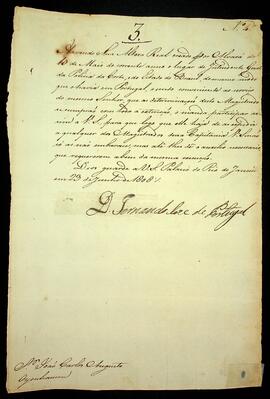 3.
Nº 4
Havendo Sua Alteza Real creado por Alvará de
10 de Maio do corrente anno o lugar de Intendente Geral
da Policia da Corte, e do Estado do Brazil, da mesma maneira
que o havia em Portugal, e sendo conveniente ao serviço
do mesmo Senhor, que as determinações deste Magistrado
se cumprão com toda a
a V. S. para que logo que elle haja de as expedir
a qualquer dos Magistrados dessa Capitania V. S. não
só as não embarace, mas até lhe dê o auxilio necessario,
que requererem a bem da mesma
Deos guarde a V. S. Palacio do Rio de Janeiro
em 23 de Junho de 1808
D. Fernando Joze de Portugal
João Carlos Augusto
Oyenhausen